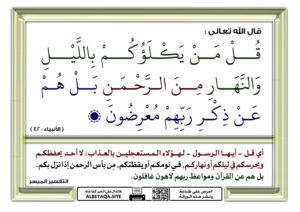 قال الله تعالى :
قُلْ مَنْ يَكْلَؤُكُمْ بِاللَّيْلِ
وَالنَّهَارِ مِنَ الرَّحْمَنِ بَلْ هُمْ
عَنْ ذِكْرِ رَبِّهِمْ مُعْرِضُونَ
(الأنبياء : ٤٢)
أي قل - أيها الرسول - لهؤلاء المستعجلين بالعذاب: لا أحد يحفظكم
ويحرسكم في ليلكم أو نهاركم، في نومكم أو يقظتكم، مِن بأس الرحمن إذا نزل بكم.
بل هم عن القرآن ومواعظ ربهم لاهون غافلون.
التفسير الميسر
احرص على طباعة
ونشر هذه الورقة
ALBETAQA.SITE